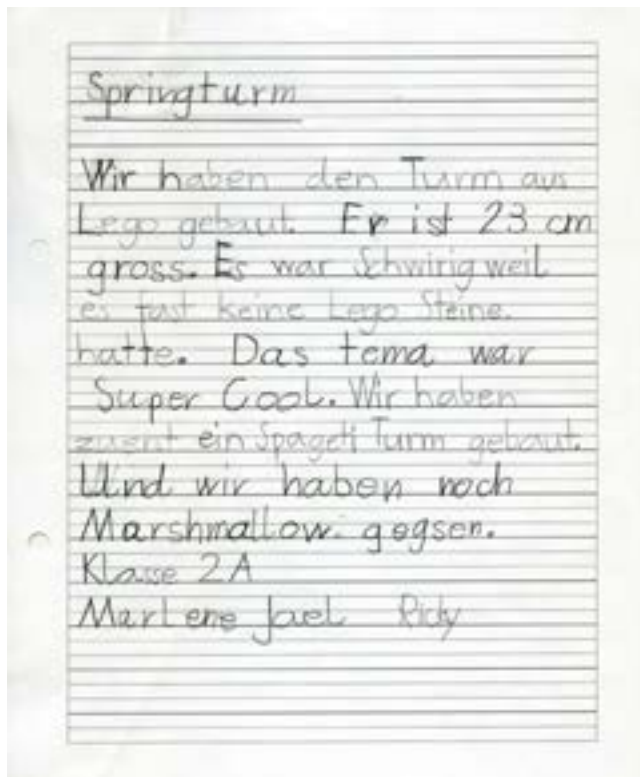 Springturm
Wir haben den Turm aus
Lego gebaut. Er ist 23 cm
gross. Es war Schwirig weil
es fast keine Lego Steine.
hatte. Das tema war
Super Cool. Wir haben
zuerst ein Spageti Turm gebaut.
Und wir haben noch
Marshmallow gegsen.
Klasse 2A
Marlene Jael